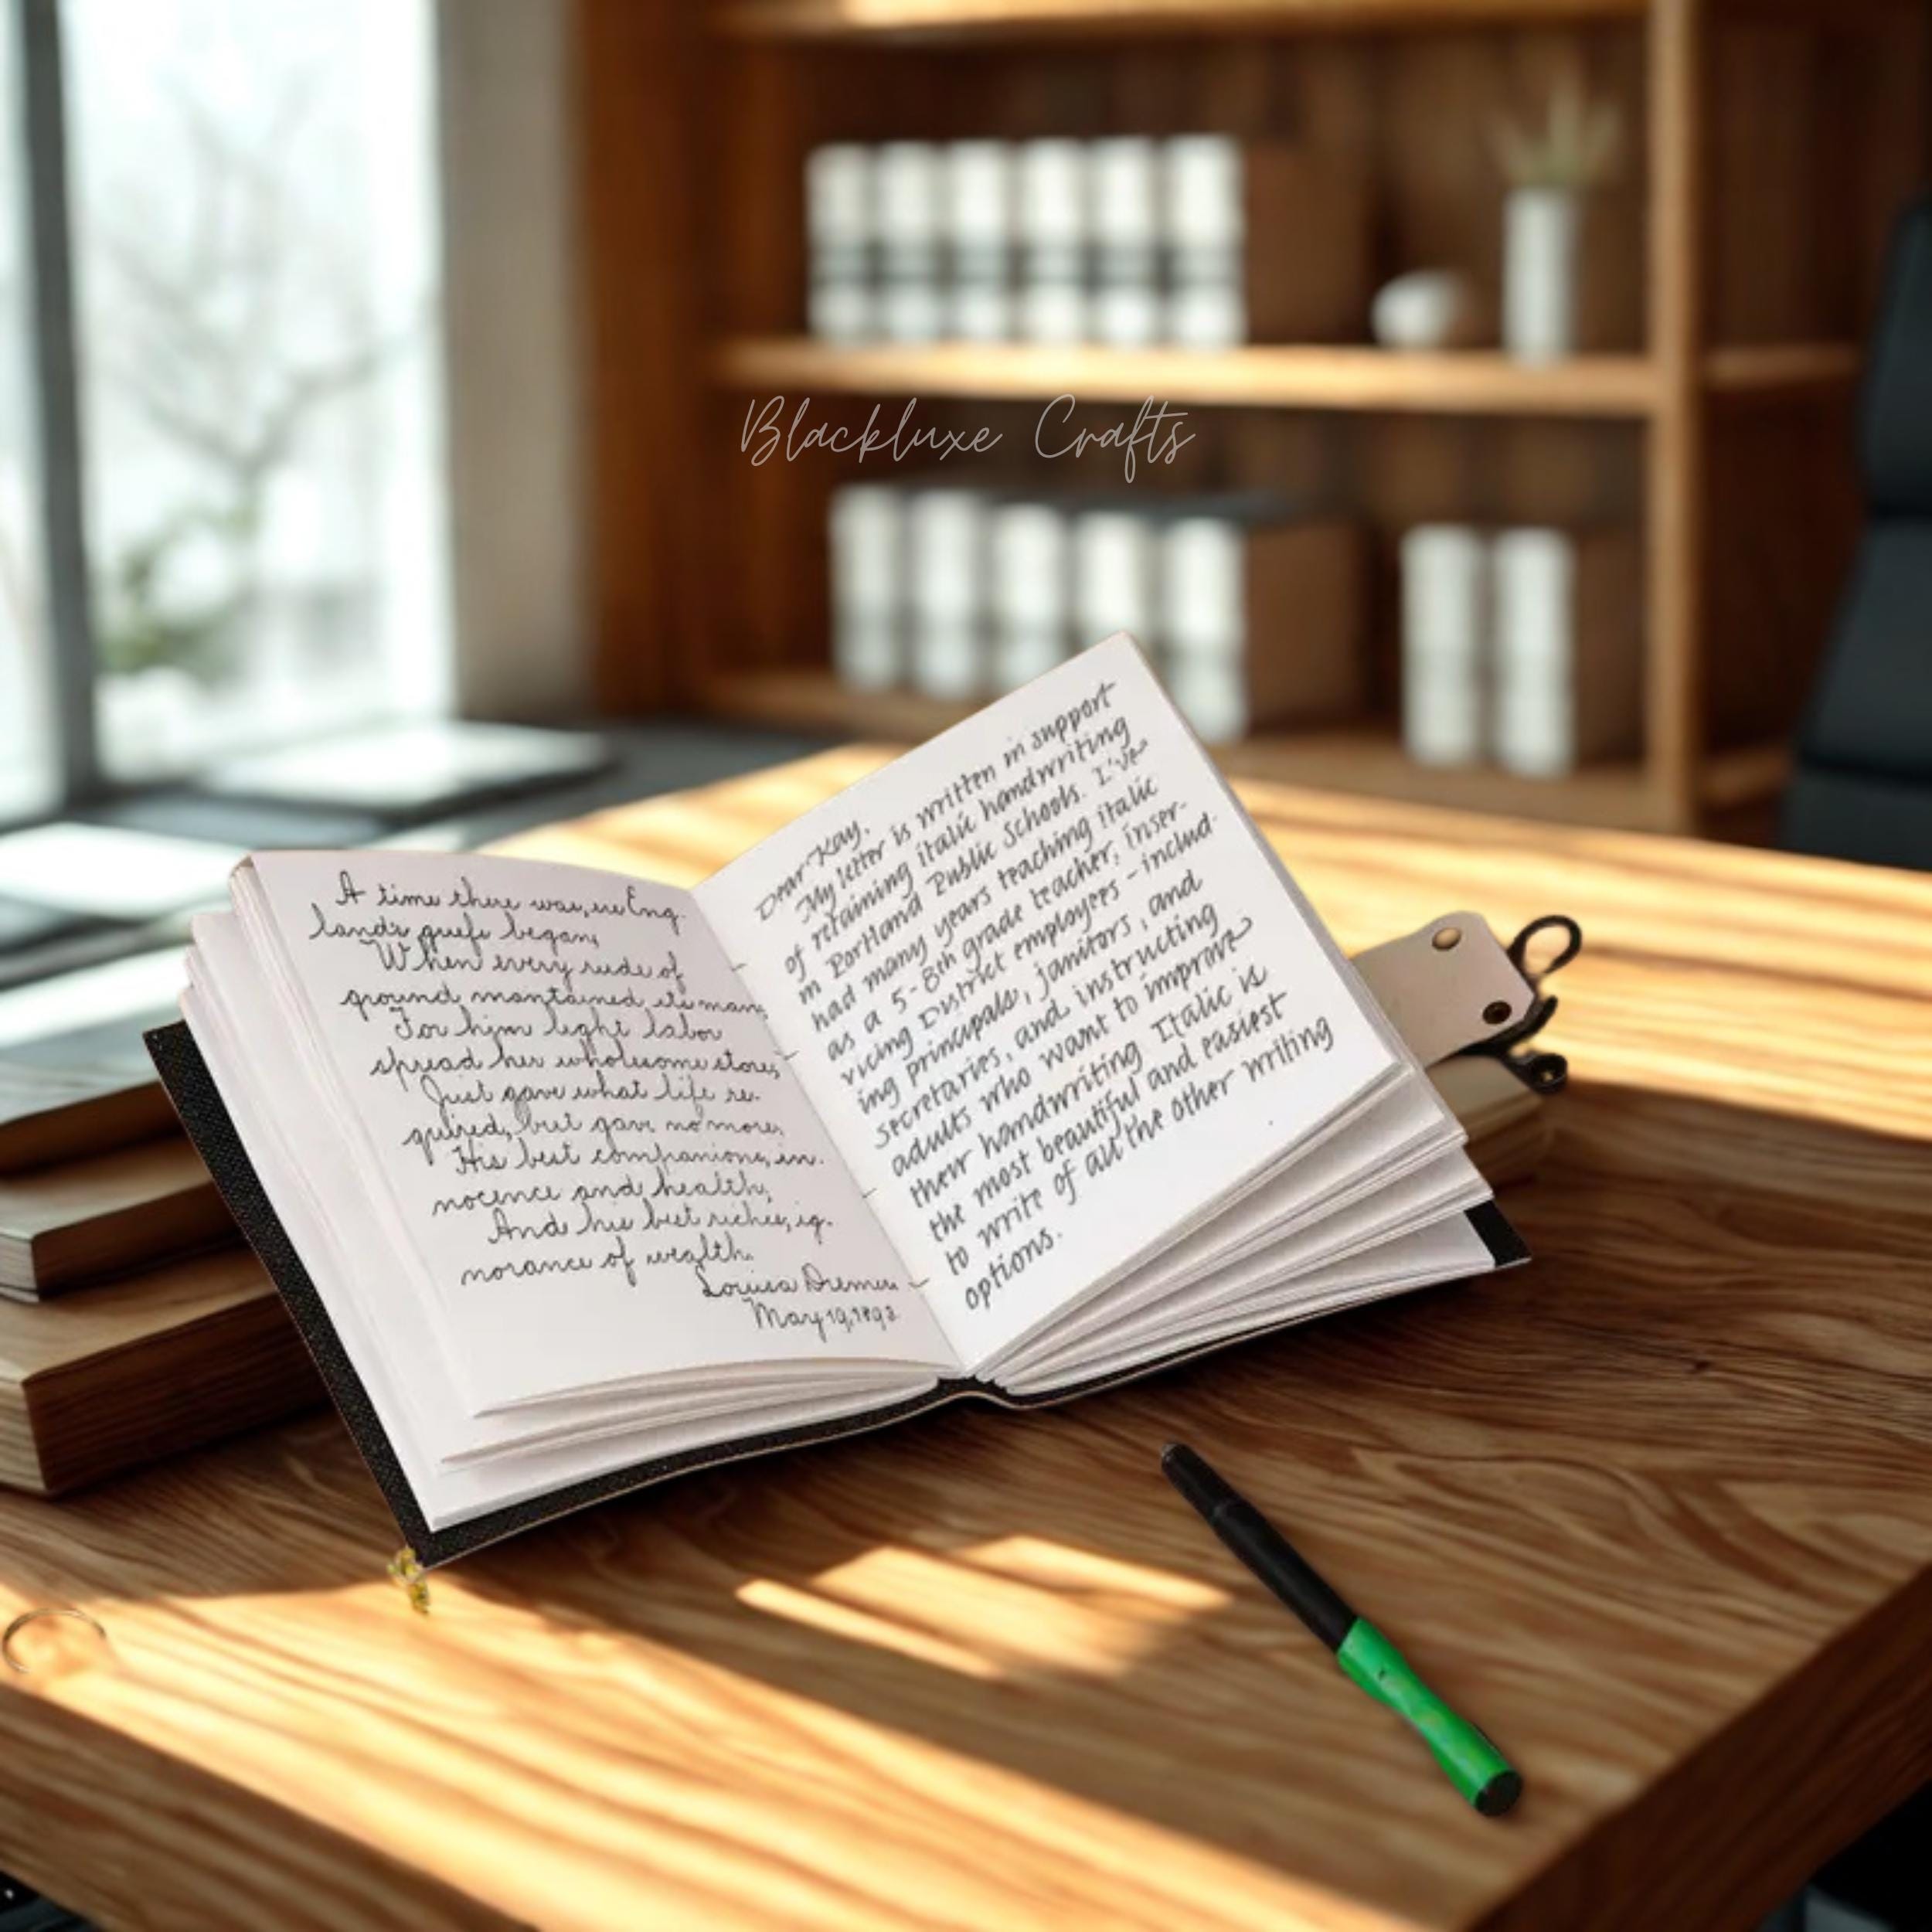 Blackluxe Crafts
A time there was, ere Eng-
land's griefs began,
When every rude of
ground maintained its man;
For him light labor
spread her wholesome store,
Just gave what life re-
quired, but gave no more;
His best companions, in-
nocence and health;
And his best riches, ig-
norance of wealth.
Louisa
May 19, 1892
Dear Kay,
My letter is written in support
of retaining italic handwriting
in Portland Public Schools. I've
had many years teaching italic
as a 5-8th grade teacher, inser-
vicing District employees - includ-
ing principals, janitors, and
secretaries, and instructing
adults who want to improve
their handwriting Italic is
the most beautiful and easiest
to write of all the other writing
options.